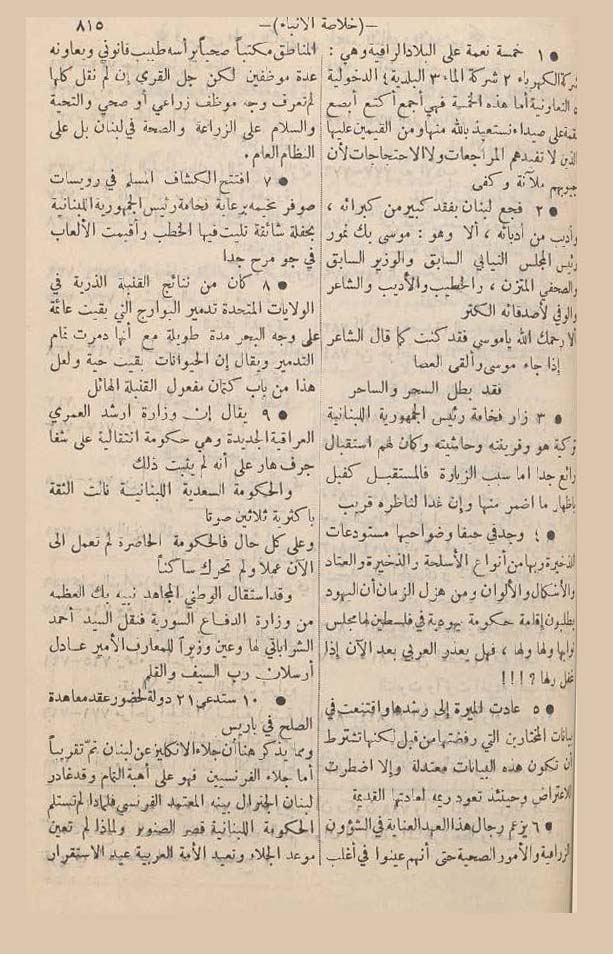 —(خلاصة الانباء)— ٨١٥
● ١ خمسة نقمة على البلاد الراقية وهي :
شركة الكهرباء ٢ شركة الماء ٣ البلدية ٤ الدخولية
٥ التعاونية أما هذه الخمسة فهي أجمع أكتع أبصع
نقمة على صيداء نستعيذ بالله منها ومن القيمين عليها
الذين لا تفيدهم المراجعات ولا الاحتجاجات لأن
جيوبهم ملآنة وكفى
● ٢ فجع لبنان بفقد كبير من كبرائه ،
وأديب من أدبائه ، ألا وهو : موسى بك نمور
رئيس المجلس النيابي السابق والوزير السابق
والصحفي المتزن ، والخطيب والأديب والشاعر
والوفي لأصدقائه الكثر
ألا رحمك الله ياموسى فقد كنت كما قال الشاعر
إذا جاء موسى وألقى العصا
فقد بطل السحر والساحر
● ٣ زار فخامة رئيس الجمهورية اللبنانية
تركية هو وقرينته وحاشيته وكان لهم استقبال
رائع جدا اما سبب الزيارة فالمستقبل كفيل
باظهار ما اضمر منها وإن غدا لناظره قريب
● ٤ وجد في حيفا وضواحيها مستودعات
الذخيرة وبها من أنواع الأسلحة والذخيرة والعتاد
والأشكال والألوان ومن هزل الزمان أن اليهود
يطلبون إقامة حكومة يهودية في فلسطين لها مجلس
نوابها ولها ولها ، فهل يعذر العربي بعد الآن إذا
غفل ربها ? !!!
● ٥ عادت الميرة إلى رشدها واقتنعت في
بيانات المختارين التي رفضتها من قبل لكنها تشترط
أن تكون هذه البيانات معتدلة وإلا اضطرت
للاعتراض وحينئذ تعود ريمه لعادتها القديمة
● ٦ يزعم رجال هذا العهد العناية في الشؤون
الزراعية والأمور الصحية حتى أنهم عينوا في أغلب
المناطق مكتباً صحياً يرأسه طبيب قانوني ويعاونه
عدة موظفين لكن جل القرى إن لم نقل كلها
لم تعرف وجه موظف زراعي أو صحي والتحية
والسلام على الزراعة والصحة في لبنان بل على
النظام العام .
● ٧ افتتح الكشاف المسلم في رويسات
صوفر مخيمه برعاية فخامة رئيس الجمهورية اللبنانية
بحفلة شائقة تليت فيها الخطب وأقيمت الألعاب
في جو مرح جدا
● ٨ كان من نتائج القنبلة الذرية في
الولايات المتحدة تدمير البوارج التي بقيت عائمة
على وجه البحر مدة طويلة مع أنها دمرت تمام
التدمير ويقال إن الحيوانات بقيت حية ولعل
هذا من باب كتمان مفعول القنبلة الهائل
● ٩ يقال إن وزارة ارشد العمري
العراقية الجديدة وهي حكومة انتقالية على شفا
جرف هار على أنه لم يثبت ذلك
والحكومة السعدية اللبنانية نالت الثقة
باكثرية ثلاثين صوتا
وعلى كل حال فالحكومة الحاضرة لم تعمل الى
الآن عملا ولم تحرك ساكناً
وقد استقال الوطني المجاهد نبيه بك العظمه
من وزارة الدفاع السورية فنقل السيد أحمد
الشراباتي لها وعين وزيراً للمعارف الأمير عادل
أرسلان رب السيف والقلم
● ١٠ ستدعى ٢١ دولة لحضور عقد معاهدة
الصلح في باريس
ومما يذكر هنا أن جلاء الانكليز عن لبنان تم تقريباً
أما جلاء الفرنسيين فهو على أهبة التمام وقد غادر
لبنان الجنرال بينه المعتمد الفرنسي فلماذا لم تستلم
الحكومة اللبنانية قصر الصنوبر ولماذا لم تعين
موعد الجلاء وتعيد الأمة العربية عيد الاستقرار